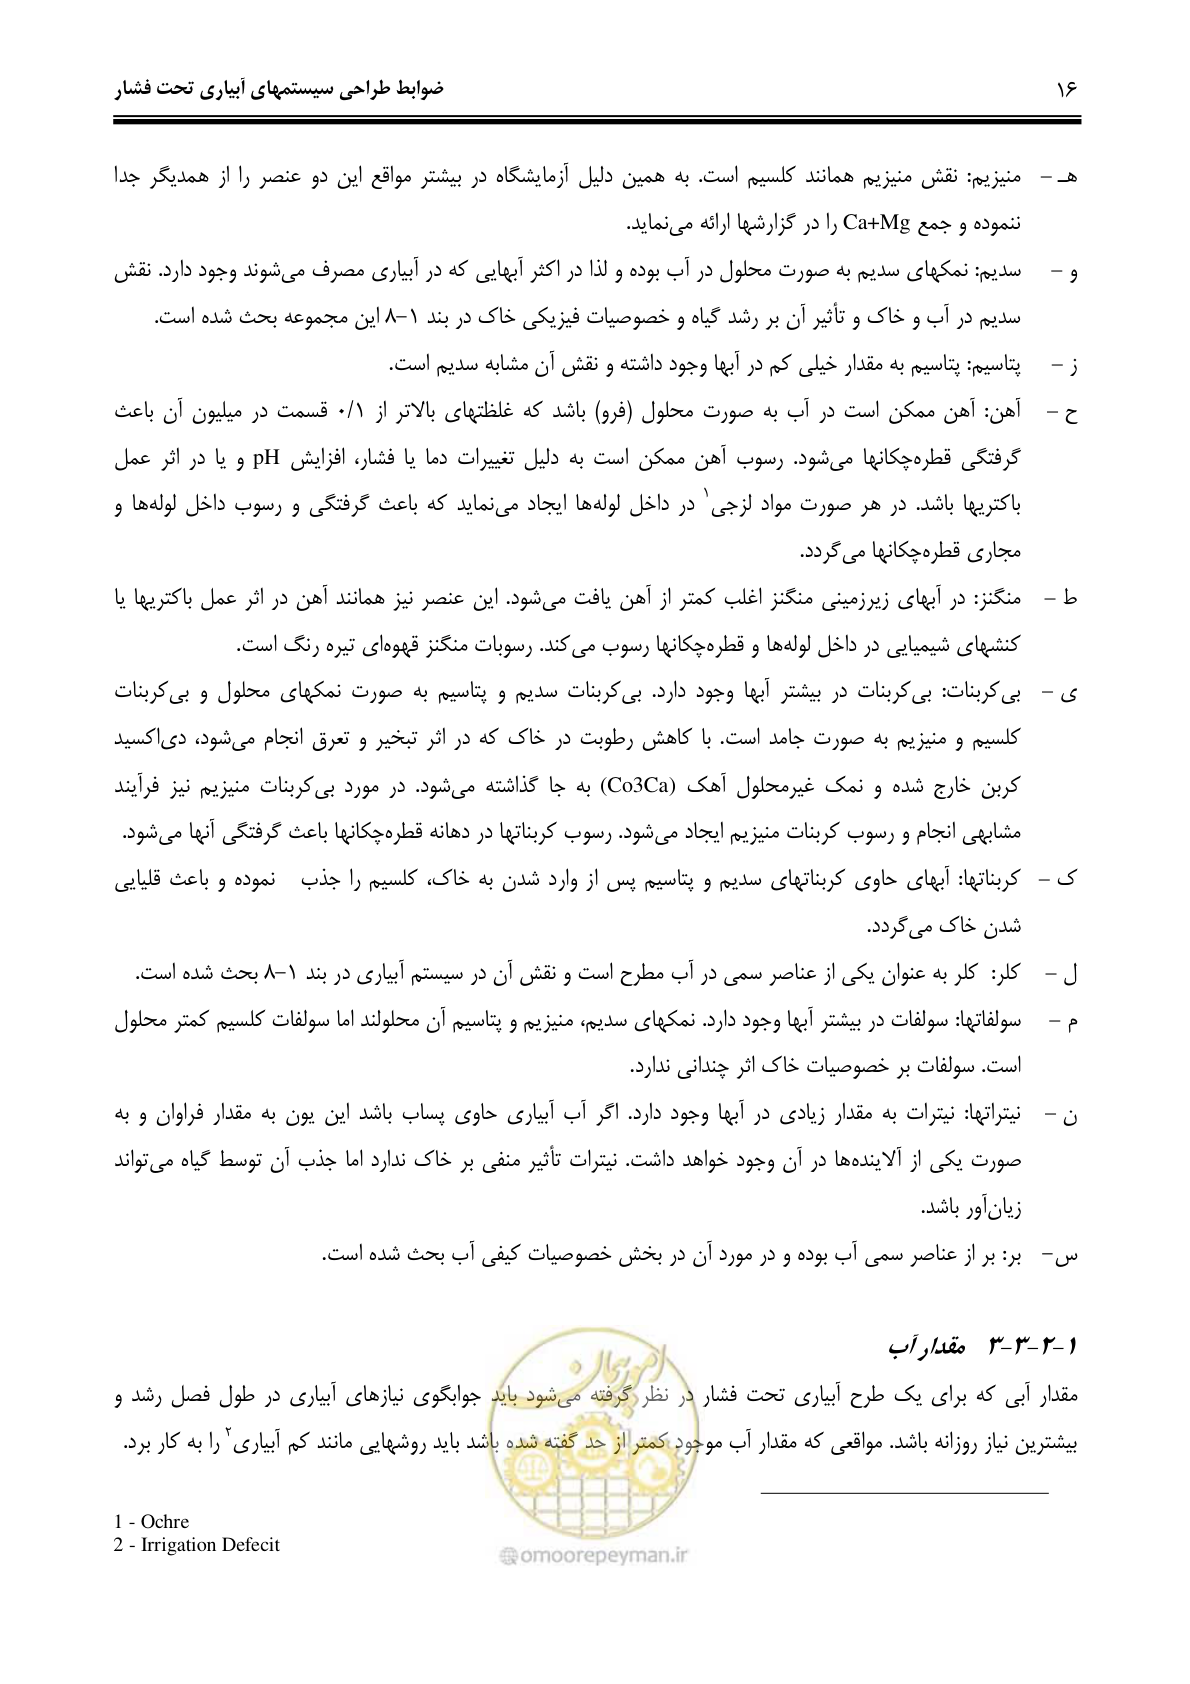 ۱۶ ضوابط طراحی سیستمهای آبیاری تحت فشار
هـ – منیزیم: نقش منیزیم همانند کلسیم است. به همین دلیل آزمایشگاه در بیشتر مواقع این دو عنصر را از همدیگر جدا
ننموده و جمع Ca+Mg را در گزارشها ارائه می‌نماید.
و – سدیم: نمکهای سدیم به صورت محلول در آب بوده و لذا در اکثر آبهایی که در آبیاری مصرف می‌شوند وجود دارد. نقش
سدیم در آب و خاک و تأثیر آن بر رشد گیاه و خصوصیات فیزیکی خاک در بند ۱–۸ این مجموعه بحث شده است.
ز – پتاسیم: پتاسیم به مقدار خیلی کم در آبها وجود داشته و نقش آن مشابه سدیم است.
ح – آهن: آهن ممکن است در آب به صورت محلول (فرو) باشد که غلظتهای بالاتر از ۰/۱ قسمت در میلیون آن باعث
گرفتگی قطره‌چکانها می‌شود. رسوب آهن ممکن است به دلیل تغییرات دما یا فشار، افزایش pH و یا در اثر عمل
باکتریها باشد. در هر صورت مواد لزجی۱ در داخل لوله‌ها ایجاد می‌نماید که باعث گرفتگی و رسوب داخل لوله‌ها و
مجاری قطره‌چکانها می‌گردد.
ط – منگنز: در آبهای زیرزمینی منگنز اغلب کمتر از آهن یافت می‌شود. این عنصر نیز همانند آهن در اثر عمل باکتریها یا
کنشهای شیمیایی در داخل لوله‌ها و قطره‌چکانها رسوب می‌کند. رسوبات منگنز قهوه‌ای تیره رنگ است.
ی – بی‌کربنات: بی‌کربنات در بیشتر آبها وجود دارد. بی‌کربنات سدیم و پتاسیم به صورت نمکهای محلول و بی‌کربنات
کلسیم و منیزیم به صورت جامد است. با کاهش رطوبت در خاک که در اثر تبخیر و تعرق انجام می‌شود، دی‌اکسید
کربن خارج شده و نمک غیرمحلول آهک (Co3Ca) به جا گذاشته می‌شود. در مورد بی‌کربنات منیزیم نیز فرآیند
مشابهی انجام و رسوب کربنات منیزیم ایجاد می‌شود. رسوب کربناتها در دهانه قطره‌چکانها باعث گرفتگی آنها می‌شود.
ک – کربناتها: آبهای حاوی کربناتهای سدیم و پتاسیم پس از وارد شدن به خاک، کلسیم را جذب نموده و باعث قلیایی
شدن خاک می‌گردد.
ل – کلر: کلر به عنوان یکی از عناصر سمی در آب مطرح است و نقش آن در سیستم آبیاری در بند ۱–۸ بحث شده است.
م – سولفاتها: سولفات در بیشتر آبها وجود دارد. نمکهای سدیم، منیزیم و پتاسیم آن محلولند اما سولفات کلسیم کمتر محلول
است. سولفات بر خصوصیات خاک اثر چندانی ندارد.
ن – نیتراتها: نیترات به مقدار زیادی در آبها وجود دارد. اگر آب آبیاری حاوی پساب باشد این یون به مقدار فراوان و به
صورت یکی از آلاینده‌ها در آن وجود خواهد داشت. نیترات تأثیر منفی بر خاک ندارد اما جذب آن توسط گیاه می‌تواند
زیان‌آور باشد.
س– بر: بر از عناصر سمی آب بوده و در مورد آن در بخش خصوصیات کیفی آب بحث شده است.
۱–۲–۳–۳ مقدار آب
مقدار آبی که برای یک طرح آبیاری تحت فشار در نظر گرفته می‌شود باید جوابگوی نیازهای آبیاری در طول فصل رشد و
بیشترین نیاز روزانه باشد. مواقعی که مقدار آب موجود کمتر از حد گفته شده باشد باید روشهایی مانند کم آبیاری۲ را به کار برد.
1 - Ochre
2 - Irrigation Defecit
امور پیمان
@omoorepeyman.ir